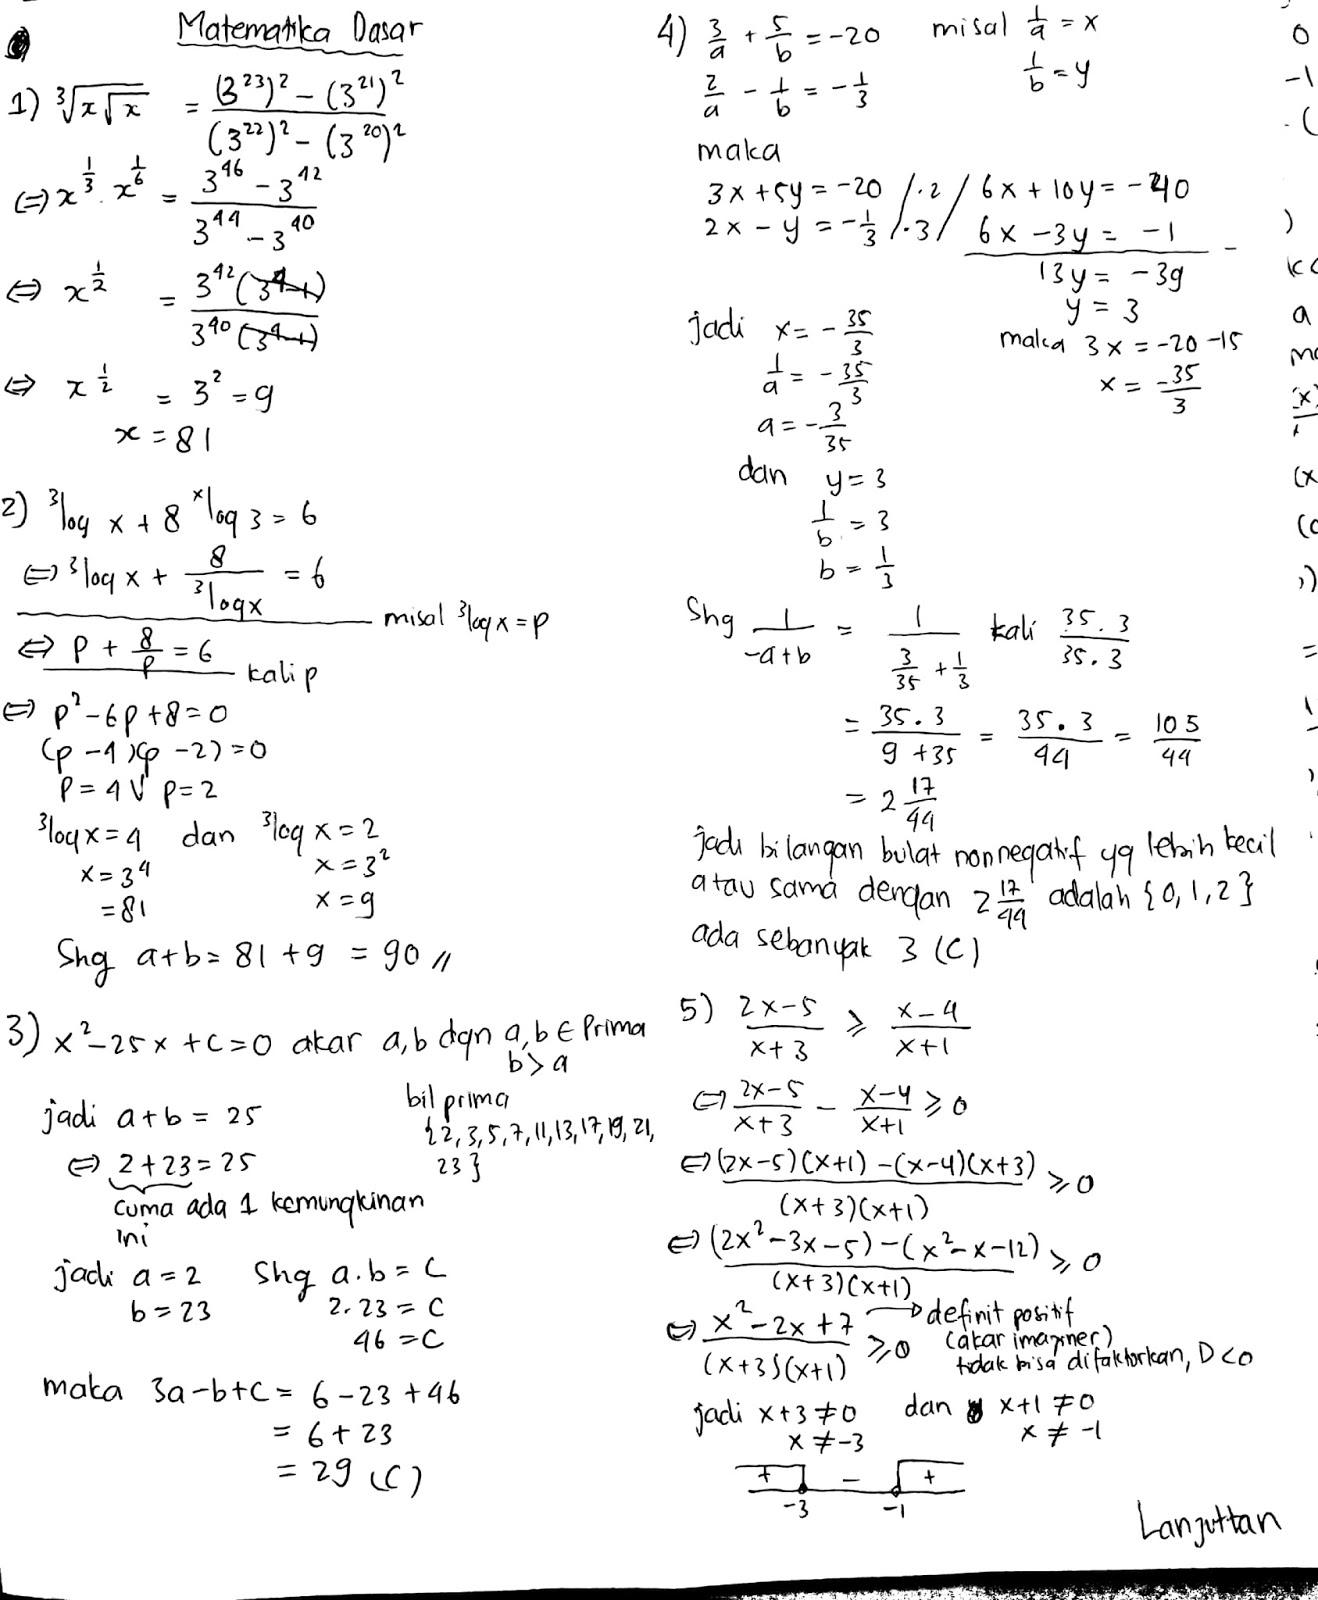 Matematika Dasar
1) ∛(x√x) = ((3^23)^2 − (3^21)^2) / ((3^22)^2 − (3^20)^2)
⇔ x^(1/3) . x^(1/6) = (3^46 − 3^42) / (3^44 − 3^40)
⇔ x^(1/2) = 3^42 (3^4−1) / 3^40 (3^4−1)
⇔ x^(1/2) = 3^2 = 9
x = 81
2) ³log x + 8 ˣlog 3 = 6
⇔ ³log x + 8/³log x = 6
misal ³log x = p
⇔ p + 8/p = 6
kali p
⇔ p² − 6p + 8 = 0
(p − 4)(p − 2) = 0
p = 4 V p = 2
³log x = 4 dan ³log x = 2
x = 3^4 x = 3²
= 81 x = 9
Shg a+b = 81 + 9 = 90 //
3) x² − 25x + c = 0 akar a, b dgn a, b ∈ Prima
b > a
jadi a + b = 25 bil prima
{2, 3, 5, 7, 11, 13, 17, 19, 21,
⇔ 2 + 23 = 25 23}
cuma ada 1 kemungkinan
ini
jadi a = 2 Shg a.b = C
b = 23 2.23 = C
46 = C
maka 3a − b + c = 6 − 23 + 46
= 6 + 23
= 29 (C)
4) 3/a + 5/b = −20 misal 1/a = x
2/a − 1/b = −1/3 1/b = y
maka
3x + 5y = −20 /.2/ 6x + 10y = −40
2x − y = −1/3 /.3/ 6x − 3y = −1 −
13y = −39
y = 3
jadi x = −35/3 maka 3x = −20 −15
1/a = −35/3 x = −35/3
a = −3/35
dan y = 3
1/b = 3
b = 1/3
Shg 1/(−a+b) = 1/(3/35 + 1/3) kali 35.3/35.3
= 35.3/(9 + 35) = 35.3/44 = 105/44
= 2 17/44
jadi bilangan bulat nonnegatif yg lebih kecil
atau sama dengan 2 17/44 adalah {0, 1, 2}
ada sebanyak 3 (C)
5) (2x−5)/(x+3) ≥ (x−4)/(x+1)
⇔ (2x−5)/(x+3) − (x−4)/(x+1) ≥ 0
⇔ ((2x−5)(x+1) − (x−4)(x+3)) / (x+3)(x+1) ≥ 0
⇔ ((2x² − 3x − 5) − (x² − x − 12)) / (x+3)(x+1) ≥ 0
⇔ (x² − 2x + 7) / (x+3)(x+1) ≥ 0 → definit positif
(akar imajiner)
tidak bisa difaktorkan, D<0
jadi x+3 ≠ 0 dan x+1 ≠ 0
x ≠ −3 x ≠ −1
+ − +
−3 −1
Lanjuttan